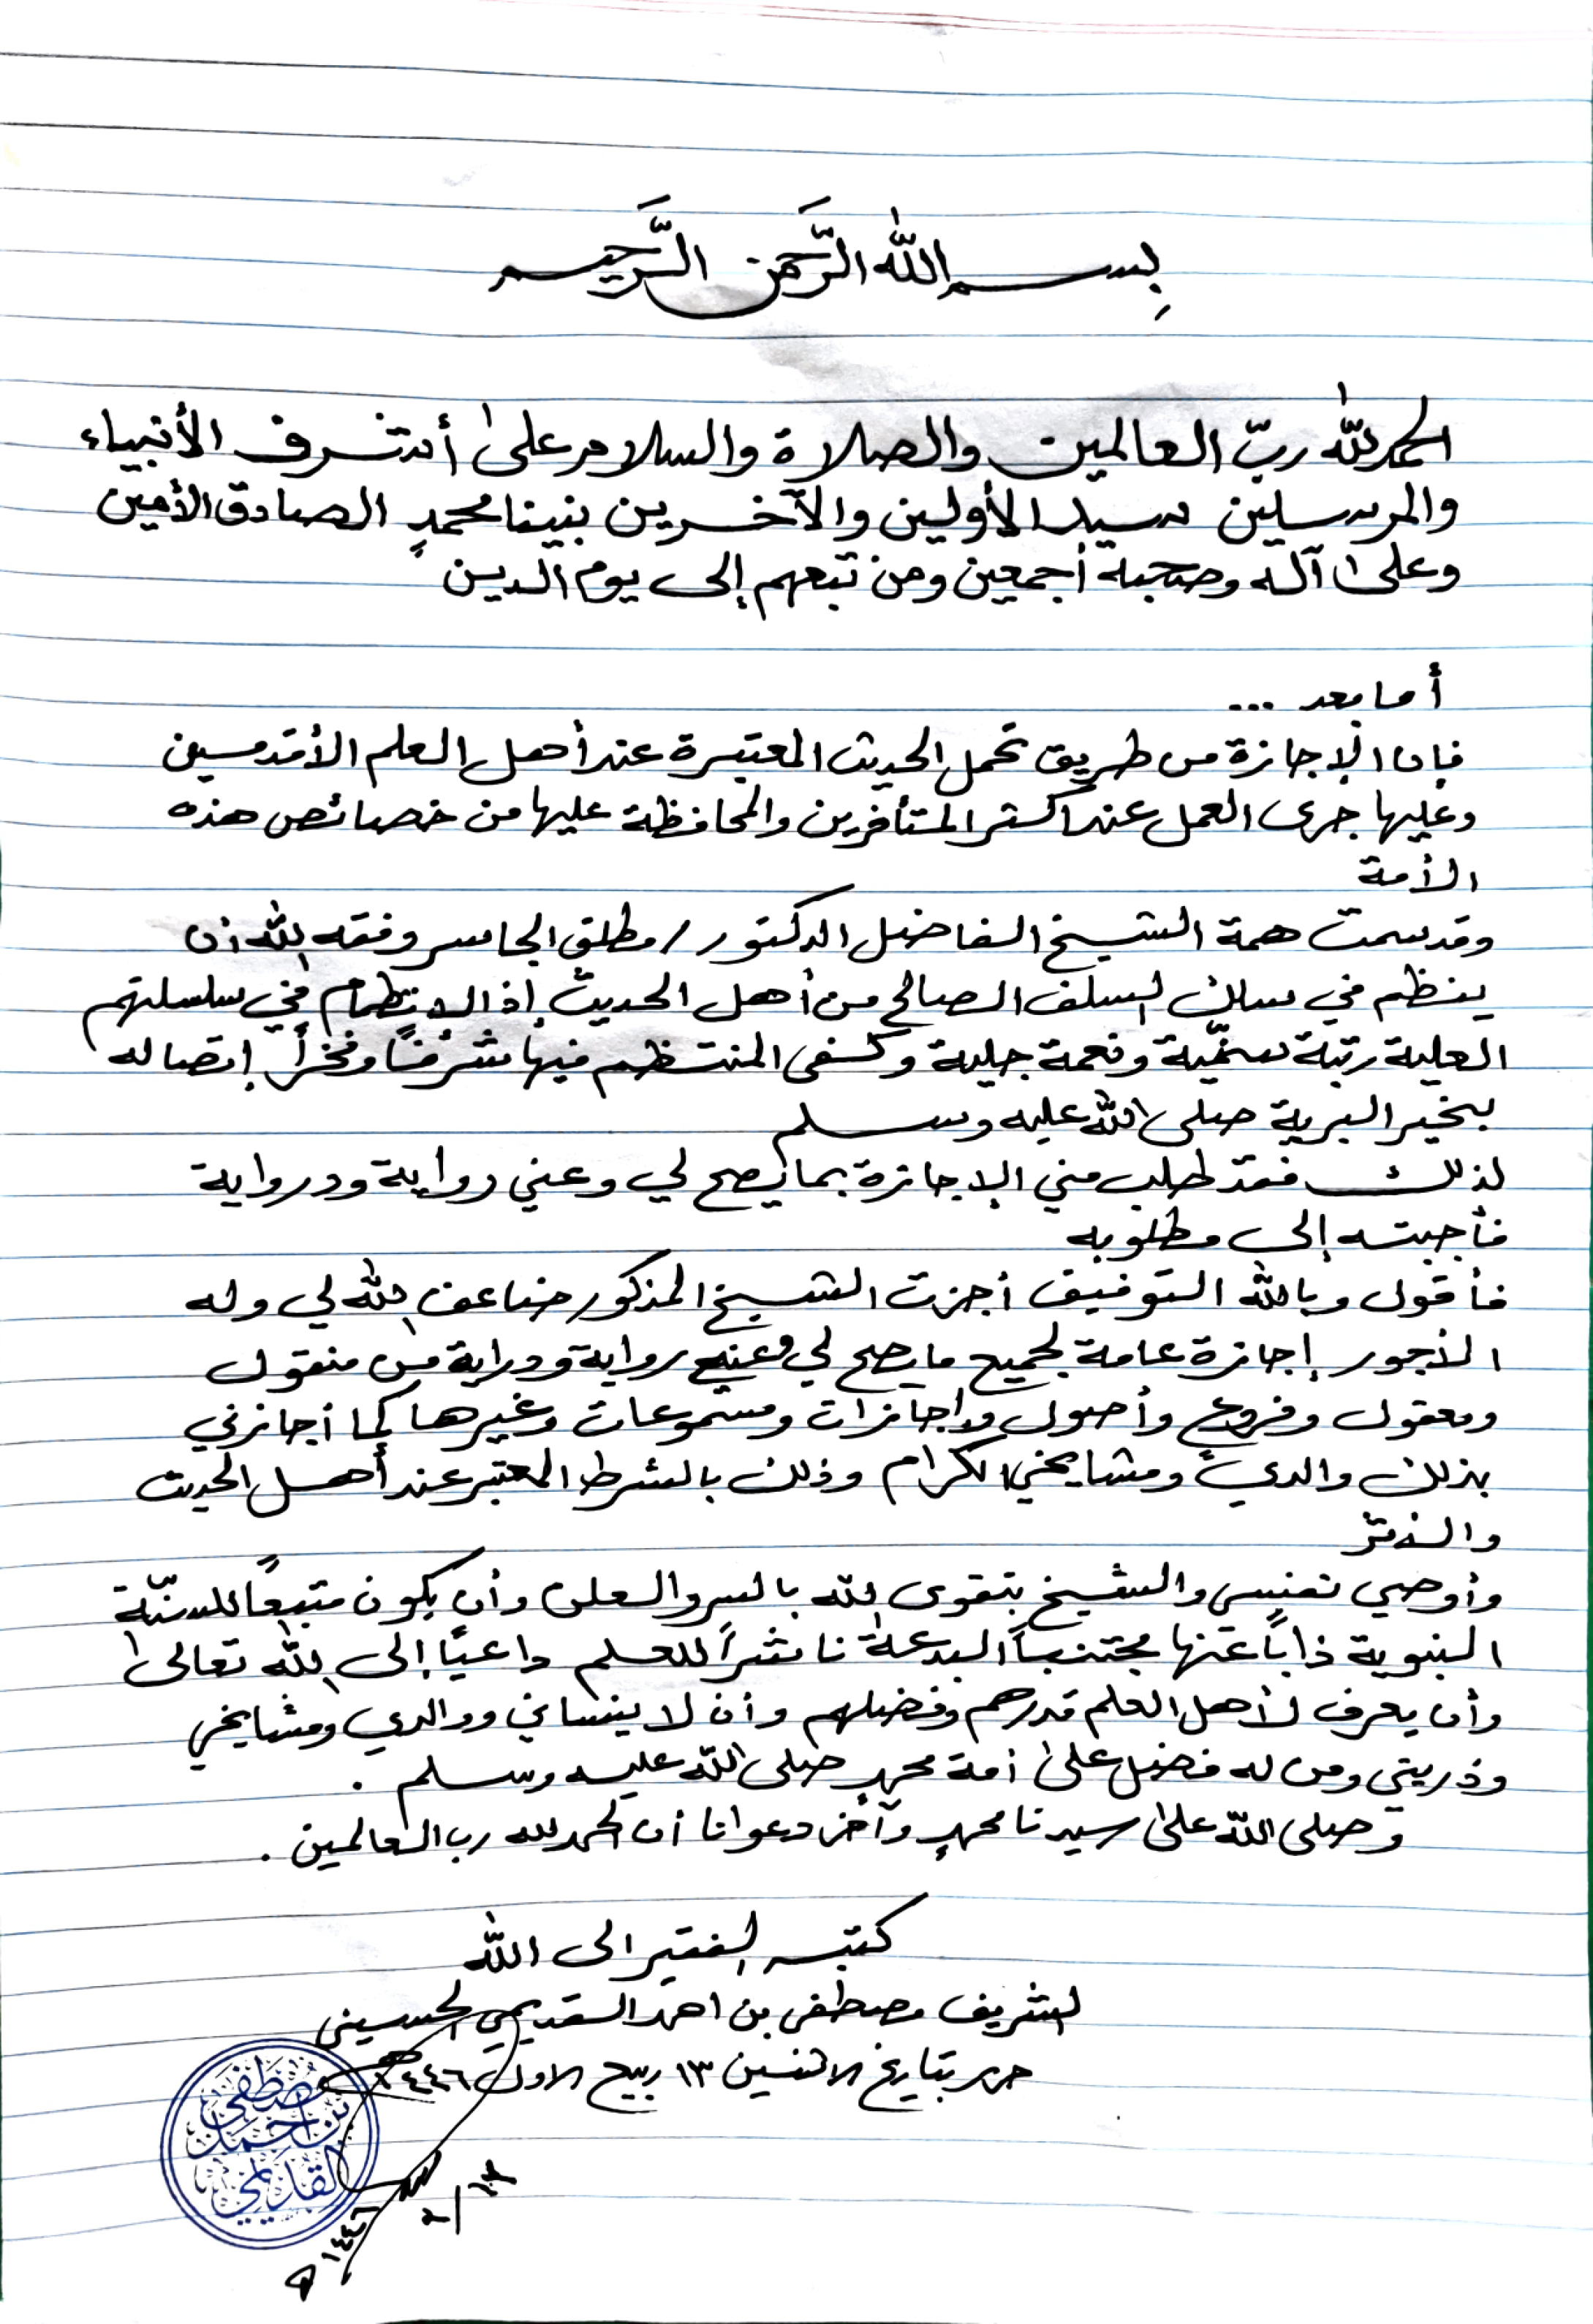 بسم الله الرَّحمن الرَّحيم
الحمد لله ربّ العالمين والصلاة والسلام على أشرف الأنبياء
والمرسلين سيد الأولين والآخرين نبينا محمدٍ الصادق الأمين
وعلى آله وصحبه أجمعين ومن تبعهم إلى يوم الدين
أما بعد ...
فإن الإجازة من طريق تحمل الحديث المعتبرة عند أهل العلم الأقدمين
وعليها جرى العمل عند أكثر المتأخرين والمحافظة عليها من خصائص هذه
الأمة
وقد سمت همة الشيخ الفاضل الدكتور / مطلق الجاسر وفقه الله أن
ينظم في سلك السلف الصالح من أهل الحديث إذ الانتظام في سلسلتهم
العلية رتبة سنيّة ونعمة جلية وكفى المنتظم فيها شرفًا وفخرًا إتصاله
بخير البرية صلى الله عليه وسلم
لذلك فقد طلب مني الإجازة بما يصح لي وعني رواية ودرواية
فأجبته إلى مطلوبه
فأقول وبالله التوفيق أجزت الشيخ المذكور ضاعف الله لي وله
الأجور إجازة عامة لجميع ما يصح لي وعني رواية ودراية من منقول
ومعقول وفروع وأصول وإجازات ومسموعات وغيرها كما أجازني
بذلك والدي ومشايخي الكرام وذلك بالشرط المعتبر عند أهل الحديث
والأثر
وأوصي نفسي والشيخ بتقوى الله بالسر والعلن وأن يكون متبعًا للسنّة
النبوية ذابًا عنها مجتنبًا البدعة ناشرًا للعلم داعيًا إلى الله تعالى
وأن يعرف لأهل العلم قدرهم وفضلهم وأن لا ينساني ووالدي ومشايخي
وذريتي ومن له فضل على أمة محمدٍ صلى الله عليه وسلم .
وصلى الله على سيدنا محمدٍ وآخر دعوانا أن الحمد لله رب العالمين .
كتبه الفقير الى الله
الشريف مصطفى بن احمد القديمي الحسيني
حرر بتاريخ الاثنين ١٣ ربيع الاول ١٤٤٦هـ
مصطفى
بن احمد
القديمي
١٤٤٦ هـ